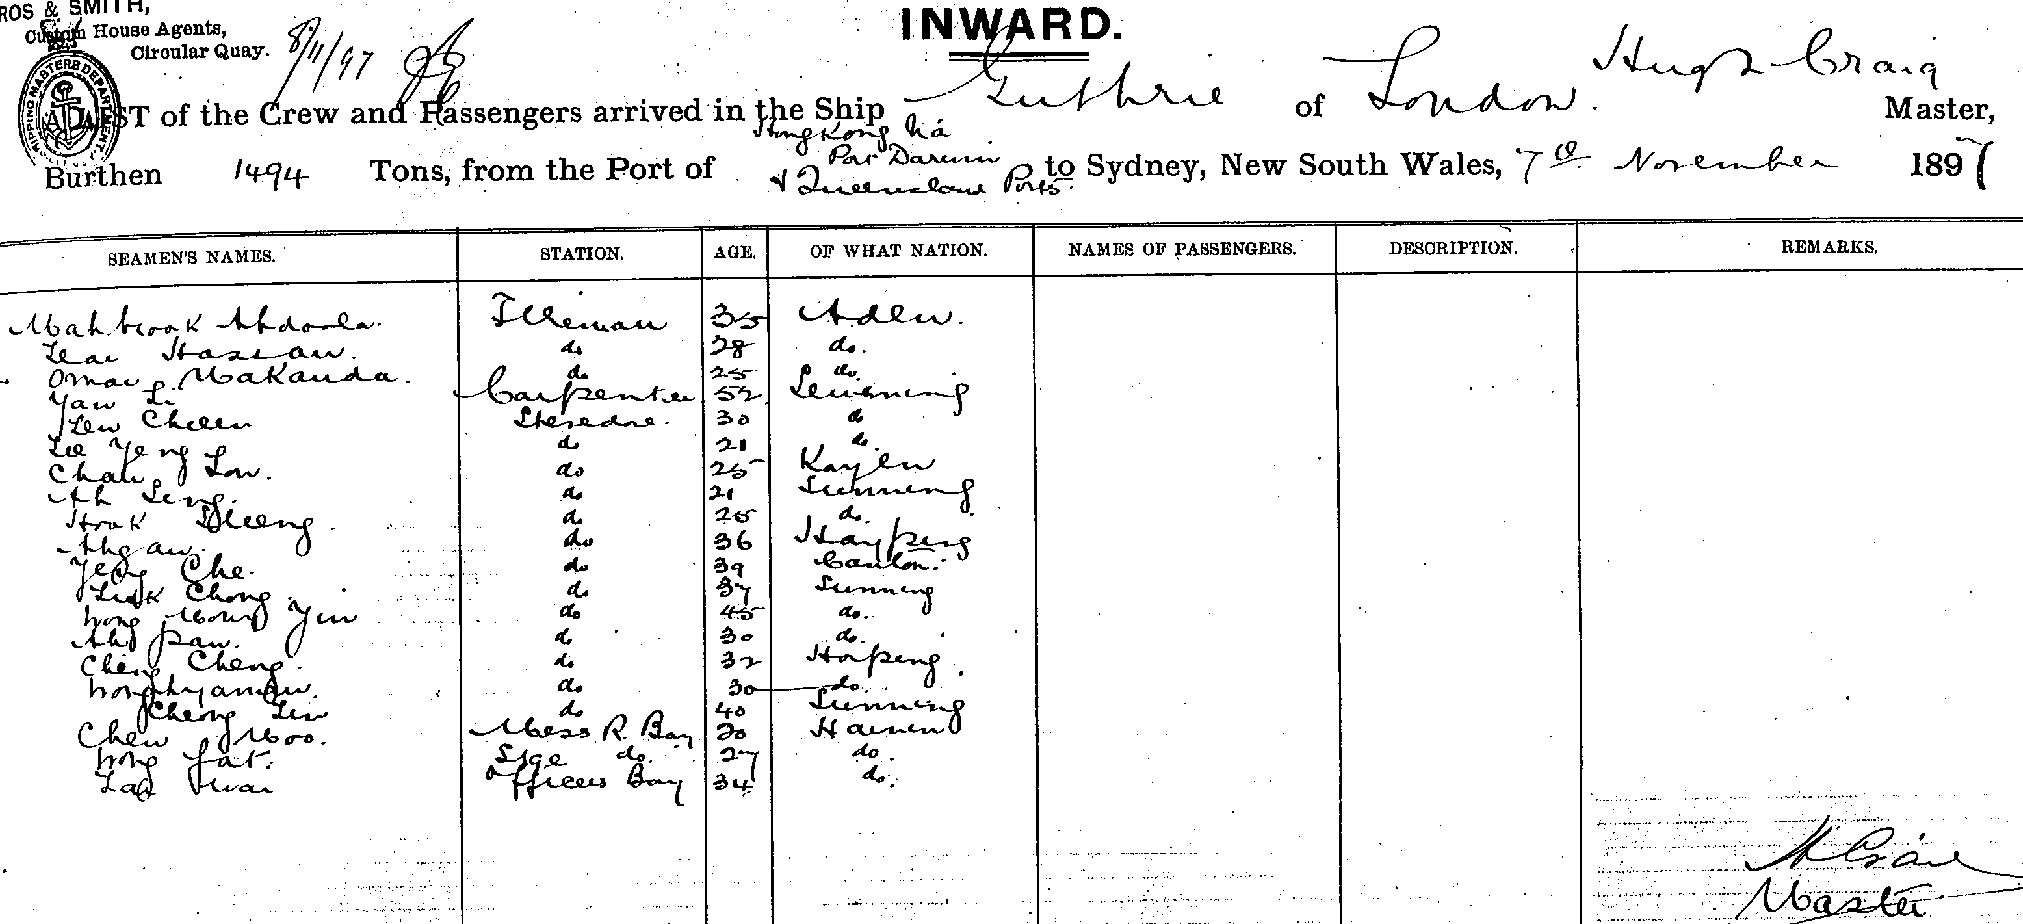 ROS & SMITH,
Custom House Agents,
Circular Quay.
8/11/97
INWARD.
LIST of the Crew and Passengers arrived in the Ship Guthrie of London. Hugh Craig Master,
Burthen 1494 Tons, from the Port of Hong Kong via Port Darwin & Queensland Ports to Sydney, New South Wales, 7th November 1897
SEAMEN'S NAMES. STATION. AGE. OF WHAT NATION. NAMES OF PASSENGERS. DESCRIPTION. REMARKS.
Mahbrook Abdoola. Fireman 35 Aden.
Hassan. do 28 do.
Omar Makanda. do 25 do.
Yaw Carpenter 52
Cheen Stevedore. 30 do
Lee Yeng do 21 do.
Chan Low. do 25
Ah Seng. do 21 Sunneng
do 25 do.
do 36 Haypeng
Yeong Che. do 39 Canton.
Chong do 37 Sunneng
Wong Yin do 45 do.
do 30 do.
Cheng Cheng. do 32 Hoipeng.
do 30 do.
Cheong do 40 Sunneng
Chew Moo. Mess R. Boy 20
Wong Fat. do. 27 do.
Officers Boy 34 do.
H Craig
Master